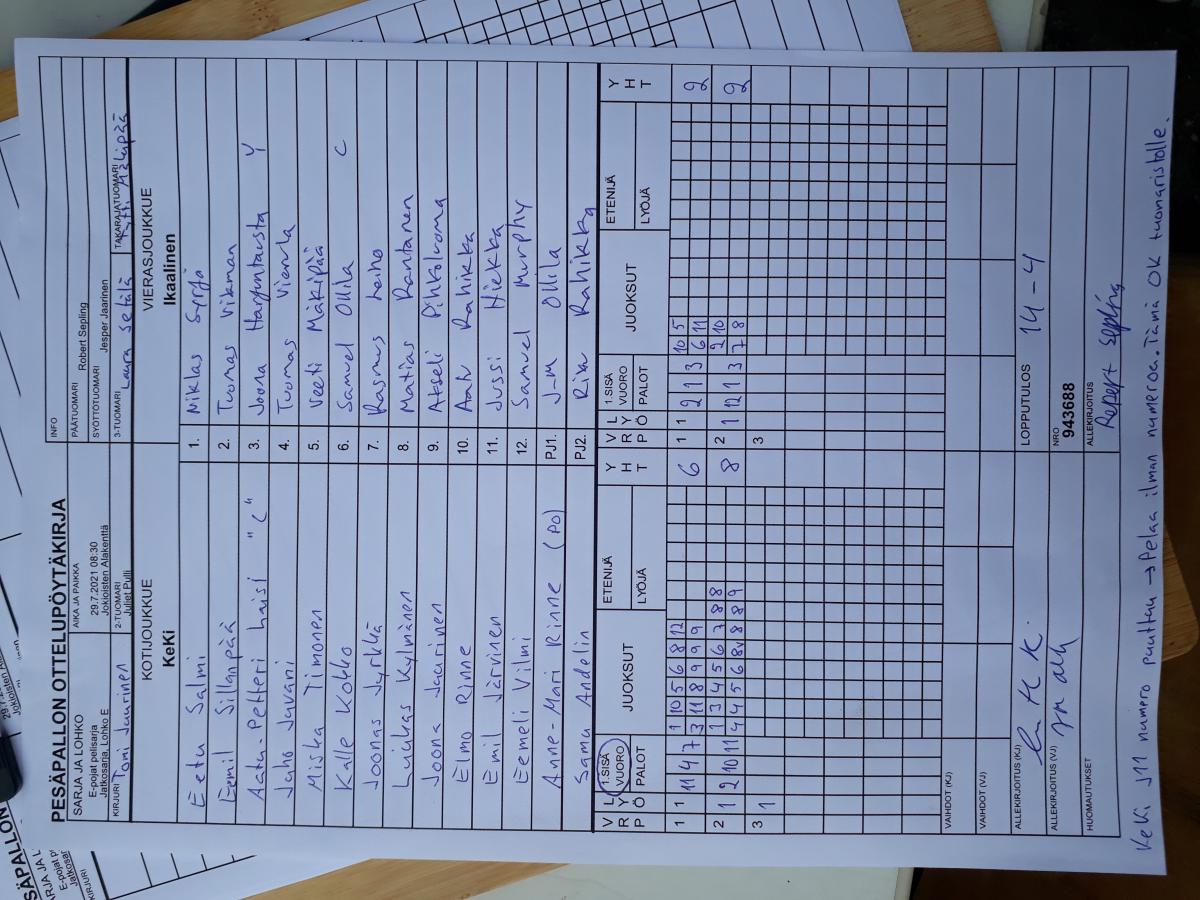 PESÄPALLON OTTELUPÖYTÄKIRJA
SARJA JA LOHKO
E-pojat pelisarja
Jatkosarja, Lohko E
AIKA JA PAIKKA
29.7.2021 08:30
Jokioisten Alakenttä
INFO
PÄÄTUOMARI Robert Sepling
SYÖTTÖTUOMARI Jesper Jaarinen
KIRJURI Toni Jaarinen
2-TUOMARI Juliet Pulli
3-TUOMARI Laura Setälä
TAKARAJATUOMARI
KOTIJOUKKUE
KeKi
VIERASJOUKKUE
Ikaalinen
Eetu Salmi 1. Niklas Syrjä
Eemil Sillanpää 2. Tuomas Vikman
Aatu-Petteri Luisi "C" 3. Joona Harjuntausta Y
Juho Javani 4. Tuomas Vienola
Miska Timonen 5. Veeti Mäkipää
Kalle Kokko 6. Samuel Ollila C
Joonas Jyrkkä 7. Rasmus Leiho
Luukas Kylmänen 8. Matias Rantanen
Joona Jaarinen 9. Akseli Pihkoluoma
Elmo Rinne 10. Aatu Rahikka
Emil Järvinen 11. Jussi Hiekka
Eemeli Vilmi 12. Samuel Murphy
Anne-Mari Rinne (PO) PJ1. J-M Ollila
Samu Andelin PJ2. Riku Rahikka
V R P L Y Ö 1.SISÄ VUORO PALOT JUOKSUT ETENIJÄ LYÖJÄ Y H T V R P L Y Ö 1.SISÄ VUORO PALOT JUOKSUT ETENIJÄ LYÖJÄ Y H T
1 1 11 4 7 1 10 5 6 8 12 6 1 1 2 1 3 10 5 2
3 11 8 9 9 9 6 11
2 1 2 10 11 1 3 4 5 6 7 8 8 8 2 1 12 1 3 2 10 2
4 4 5 6 8 8 8 9 7 8
3 1 3
VAIHDOT (KJ)
VAIHDOT (VJ)
ALLEKIRJOITUS (KJ)
LOPPUTULOS 14-4
ALLEKIRJOITUS (VJ)
NRO
943688
HUOMAUTUKSET
ALLEKIRJOITUS
KeKi J11 numero puuttuu → Pelaa ilman numeroa. Tämä OK tuomaristolle.